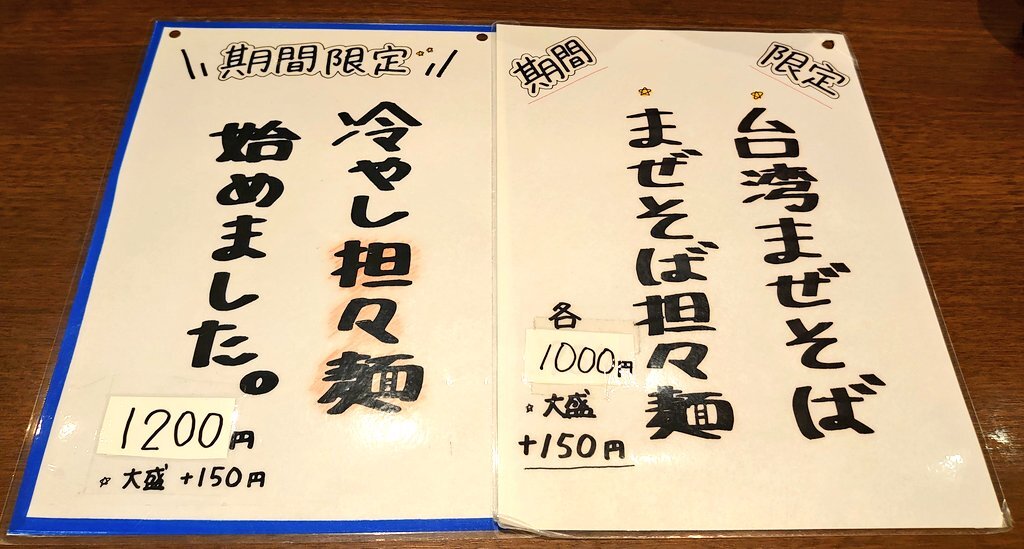 期間限定
冷やし担々麺
始めました。
1200円
☆大盛 +150円
期間 限定
台湾まぜそば
まぜそば担々麺
各
1000円
☆大盛
+150円